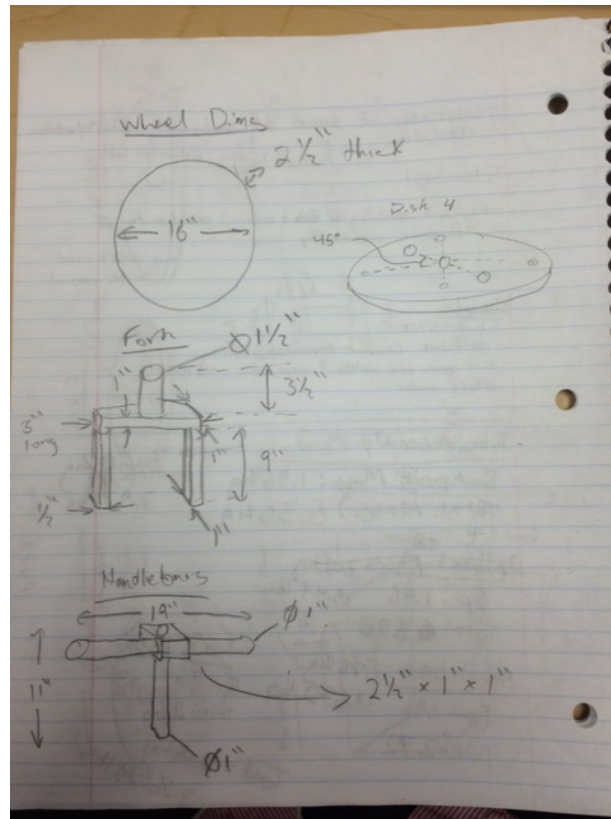 Wheel Dims
2 1/2" thick
16"
Disk 4
45°
Fork
Ø 1 1/2"
1"
3 1/2"
3"
long
1"
9"
1/2"
1"
Handlebars
19"
Ø1"
11"
2 1/2" × 1" × 1"
Ø1"